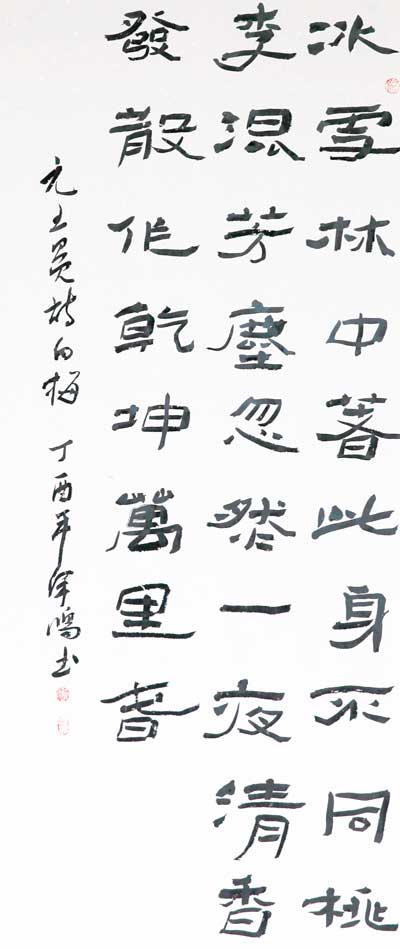 冰雪林中著此身不同桃
李混芳塵忽然一夜清香
發散作乾坤萬里春
元王冕詩白梅 丁酉年鳴书